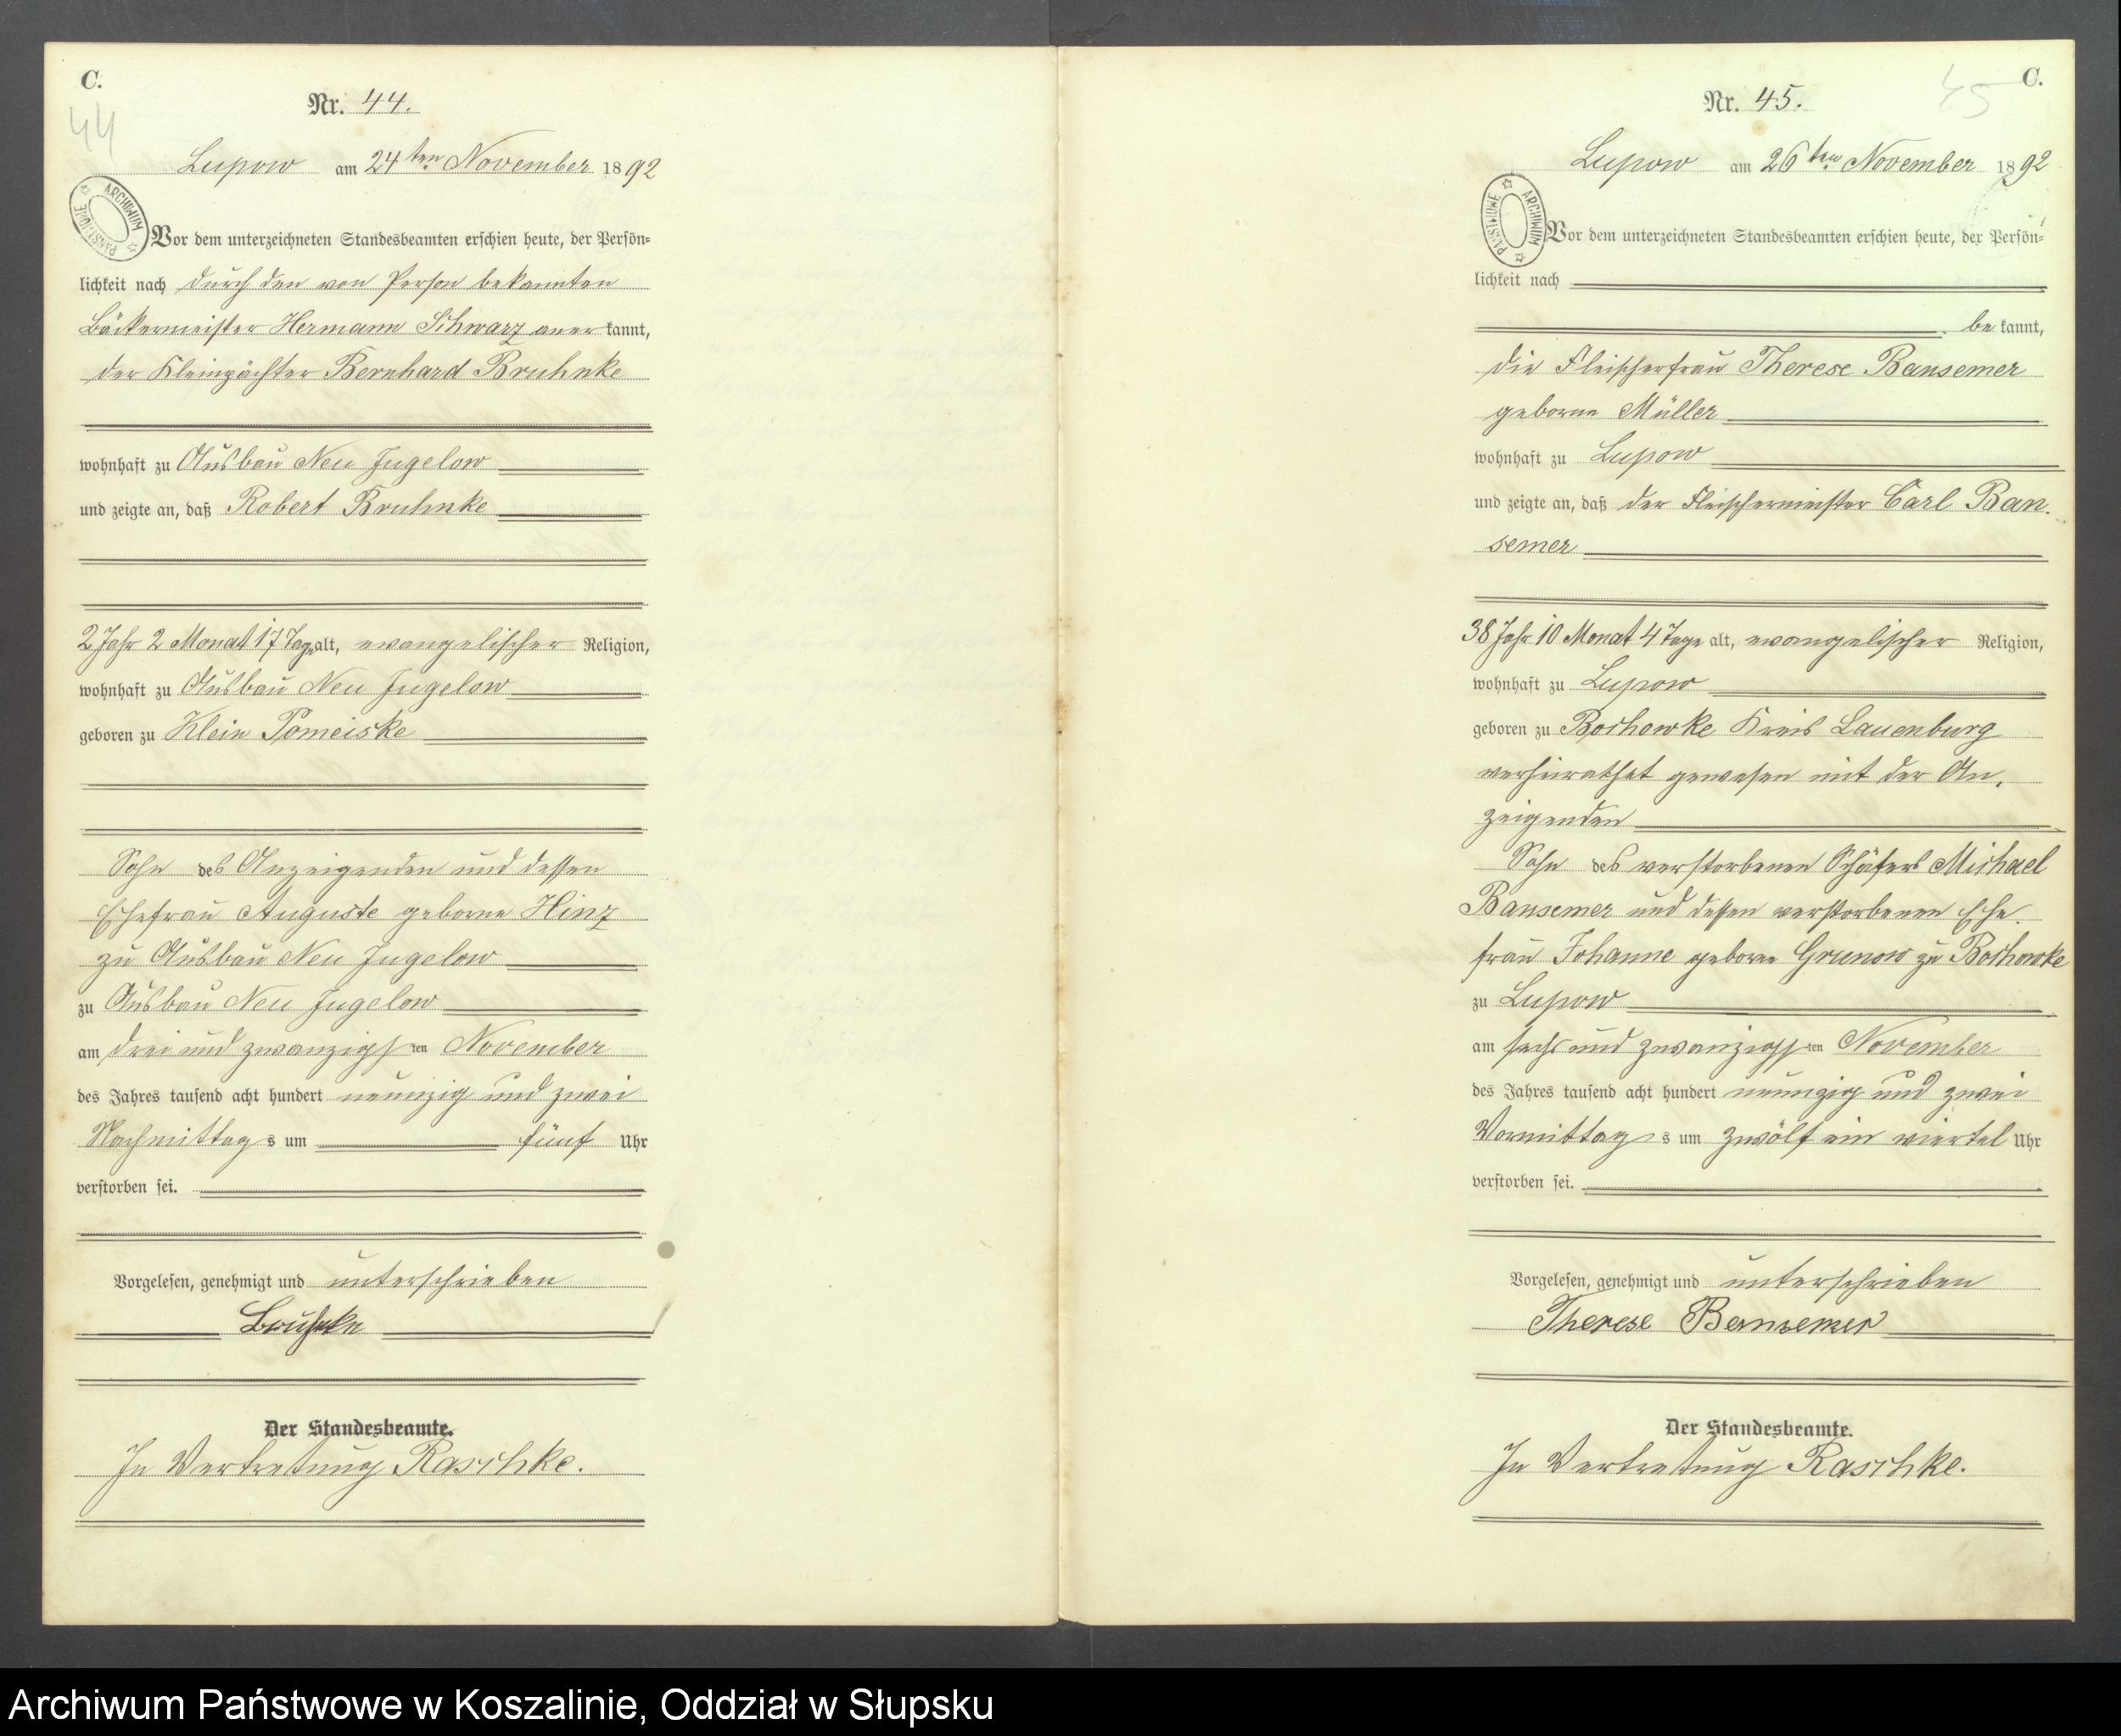 C.
44
Nr. 44.
Lupow am 24ten November 1892
ARCHIWUM PAŃSTWOWE
Vor dem unterzeichneten Standesbeamten erschien heute, der Persön=
lichkeit nach durch den von Person bekannten
Bäckermeister Hermann Schwarz anerkannt,
der Kleinpächter Bernhard Bruhnke
wohnhaft zu Ausbau Neu Jugelow
und zeigte an, daß Robert Bruhnke
2 Jahr 2 Monat 17 Tage alt, evangelischer Religion,
wohnhaft zu Ausbau Neu Jugelow
geboren zu Klein Pomeiske
Sohn des Anzeigenden und dessen
Ehefrau Auguste geborne Hinz
zu Ausbau Neu Jugelow
zu Ausbau Neu Jugelow
am drei und zwanzigsten November
des Jahres tausend acht hundert neunzig und zwei
Nachmittags um fünf Uhr
verstorben sei.
Vorgelesen, genehmigt und unterschrieben
Bruhnke
Der Standesbeamte.
In Vertretung Raschke.
45
C.
Nr. 45.
Lupow am 26ten November 1892
ARCHIWUM PAŃSTWOWE
Vor dem unterzeichneten Standesbeamten erschien heute, der Persön=
lichkeit nach
bekannt,
die Fleischerfrau Therese Bansemer
geborne Müller
wohnhaft zu Lupow
und zeigte an, daß der Fleischermeister Carl Ban-
semer
38 Jahr 10 Monat 4 Tage alt, evangelischer Religion,
wohnhaft zu Lupow
geboren zu Bochowke Kreis Lauenburg
verheirathet gewesen mit der An-
zeigenden
Sohn des verstorbenen Schäfers Michael
Bansemer und dessen verstorbenen Ehe-
frau Johanne geborne Grunow zu Bochowke
zu Lupow
am sechs und zwanzigsten November
des Jahres tausend acht hundert neunzig und zwei
Vormittags um zwölf ein viertel Uhr
verstorben sei.
Vorgelesen, genehmigt und unterschrieben
Therese Bansemer
Der Standesbeamte.
In Vertretung Raschke.
Archiwum Państwowe w Koszalinie, Oddział w Słupsku